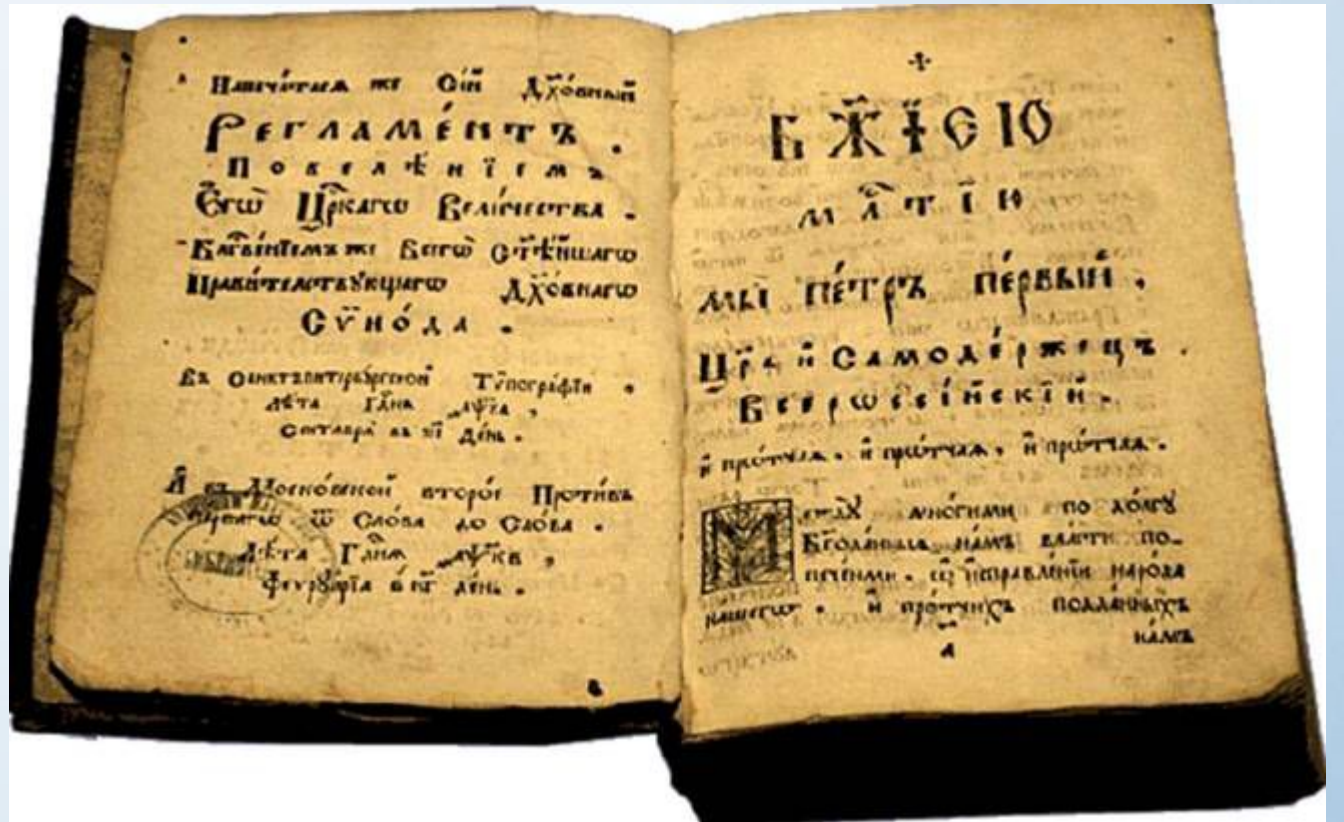 Напеча́таса же Сі́й Дх҃о́вный
Регла́ме́нтъ.
Повелѣ́нїемъ
Єгѡ̀ Цр҃каго Вели́чества.
Блг҃ве́нїемъ же Всегѡ̀ Ст҃ѣ́йшагѡ
Прави́телствꙋющагѡ Дх҃о́внагѡ
Сѷно́да.
Въ Санктъпитербꙋ́ргской Тѷпогра́фїи.
лѣ́та гдⷭ҇нѧ ҂аѱка,
Септа́врїа въ день.
А҆ въ Моско́вской второ́е Проти́въ
пе́рвагѡ ѿ Сло́ва до Сло́ва.
Лѣ́та Гдⷭ҇нѧ ҂аѱкв,
феврꙋа́рїа в кг де́нь.
в
БЖ҃ЇЄЮ
млⷭ҇тїю
мы̀ пе́тръ пе́рвый.
Цр҃ь и҆ Самоде́ржецъ
Всерѡссі́йскїй.
и҆ прѡ́тчаѧ. и҆ прѡ́тчаѧ, и҆ прѡ́тчаѧ.
Междꙋ̀ мно́гими по до́лгꙋ
Бг҃ода́нныѧ на́мъ вла́сти по-
пече́нми. ѡ҆ и҆справле́нїи наро́да
на́шегѡ. и҆ про́тчихъ по́дданныхъ
а
на́мъ